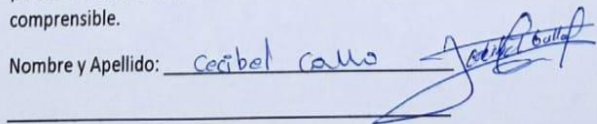 comprensible.
Nombre y Apellido: Cecibel Callo